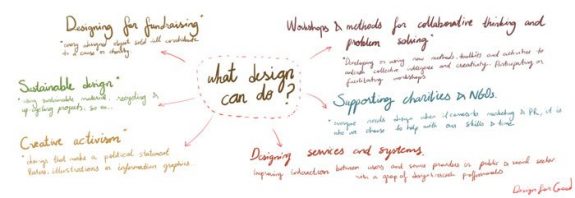 Designing for fundraising
"every designed object sold will contribute
to a cause or charity
Sustainable design
"using sustainable material, recycling &
up-cycling projects, so on...
Creative activism
"design that make a political statement
Posters, illustrations or information graphics...
what design
can do?
Workshops & methods for collaborative thinking and
problem solving
"Developing or using new methods, toolkits and activities to
collective intelligence and creativity. Participating or
facilitating workshops
Supporting charities & NGOs.
"everyone needs design when it comes to marketing & PR, it is
who we choose to help with our skills & time.
Designing services and systems.
Improving interaction between users and service providers in public & social sector
with a group of design & research professionals
Design for Good